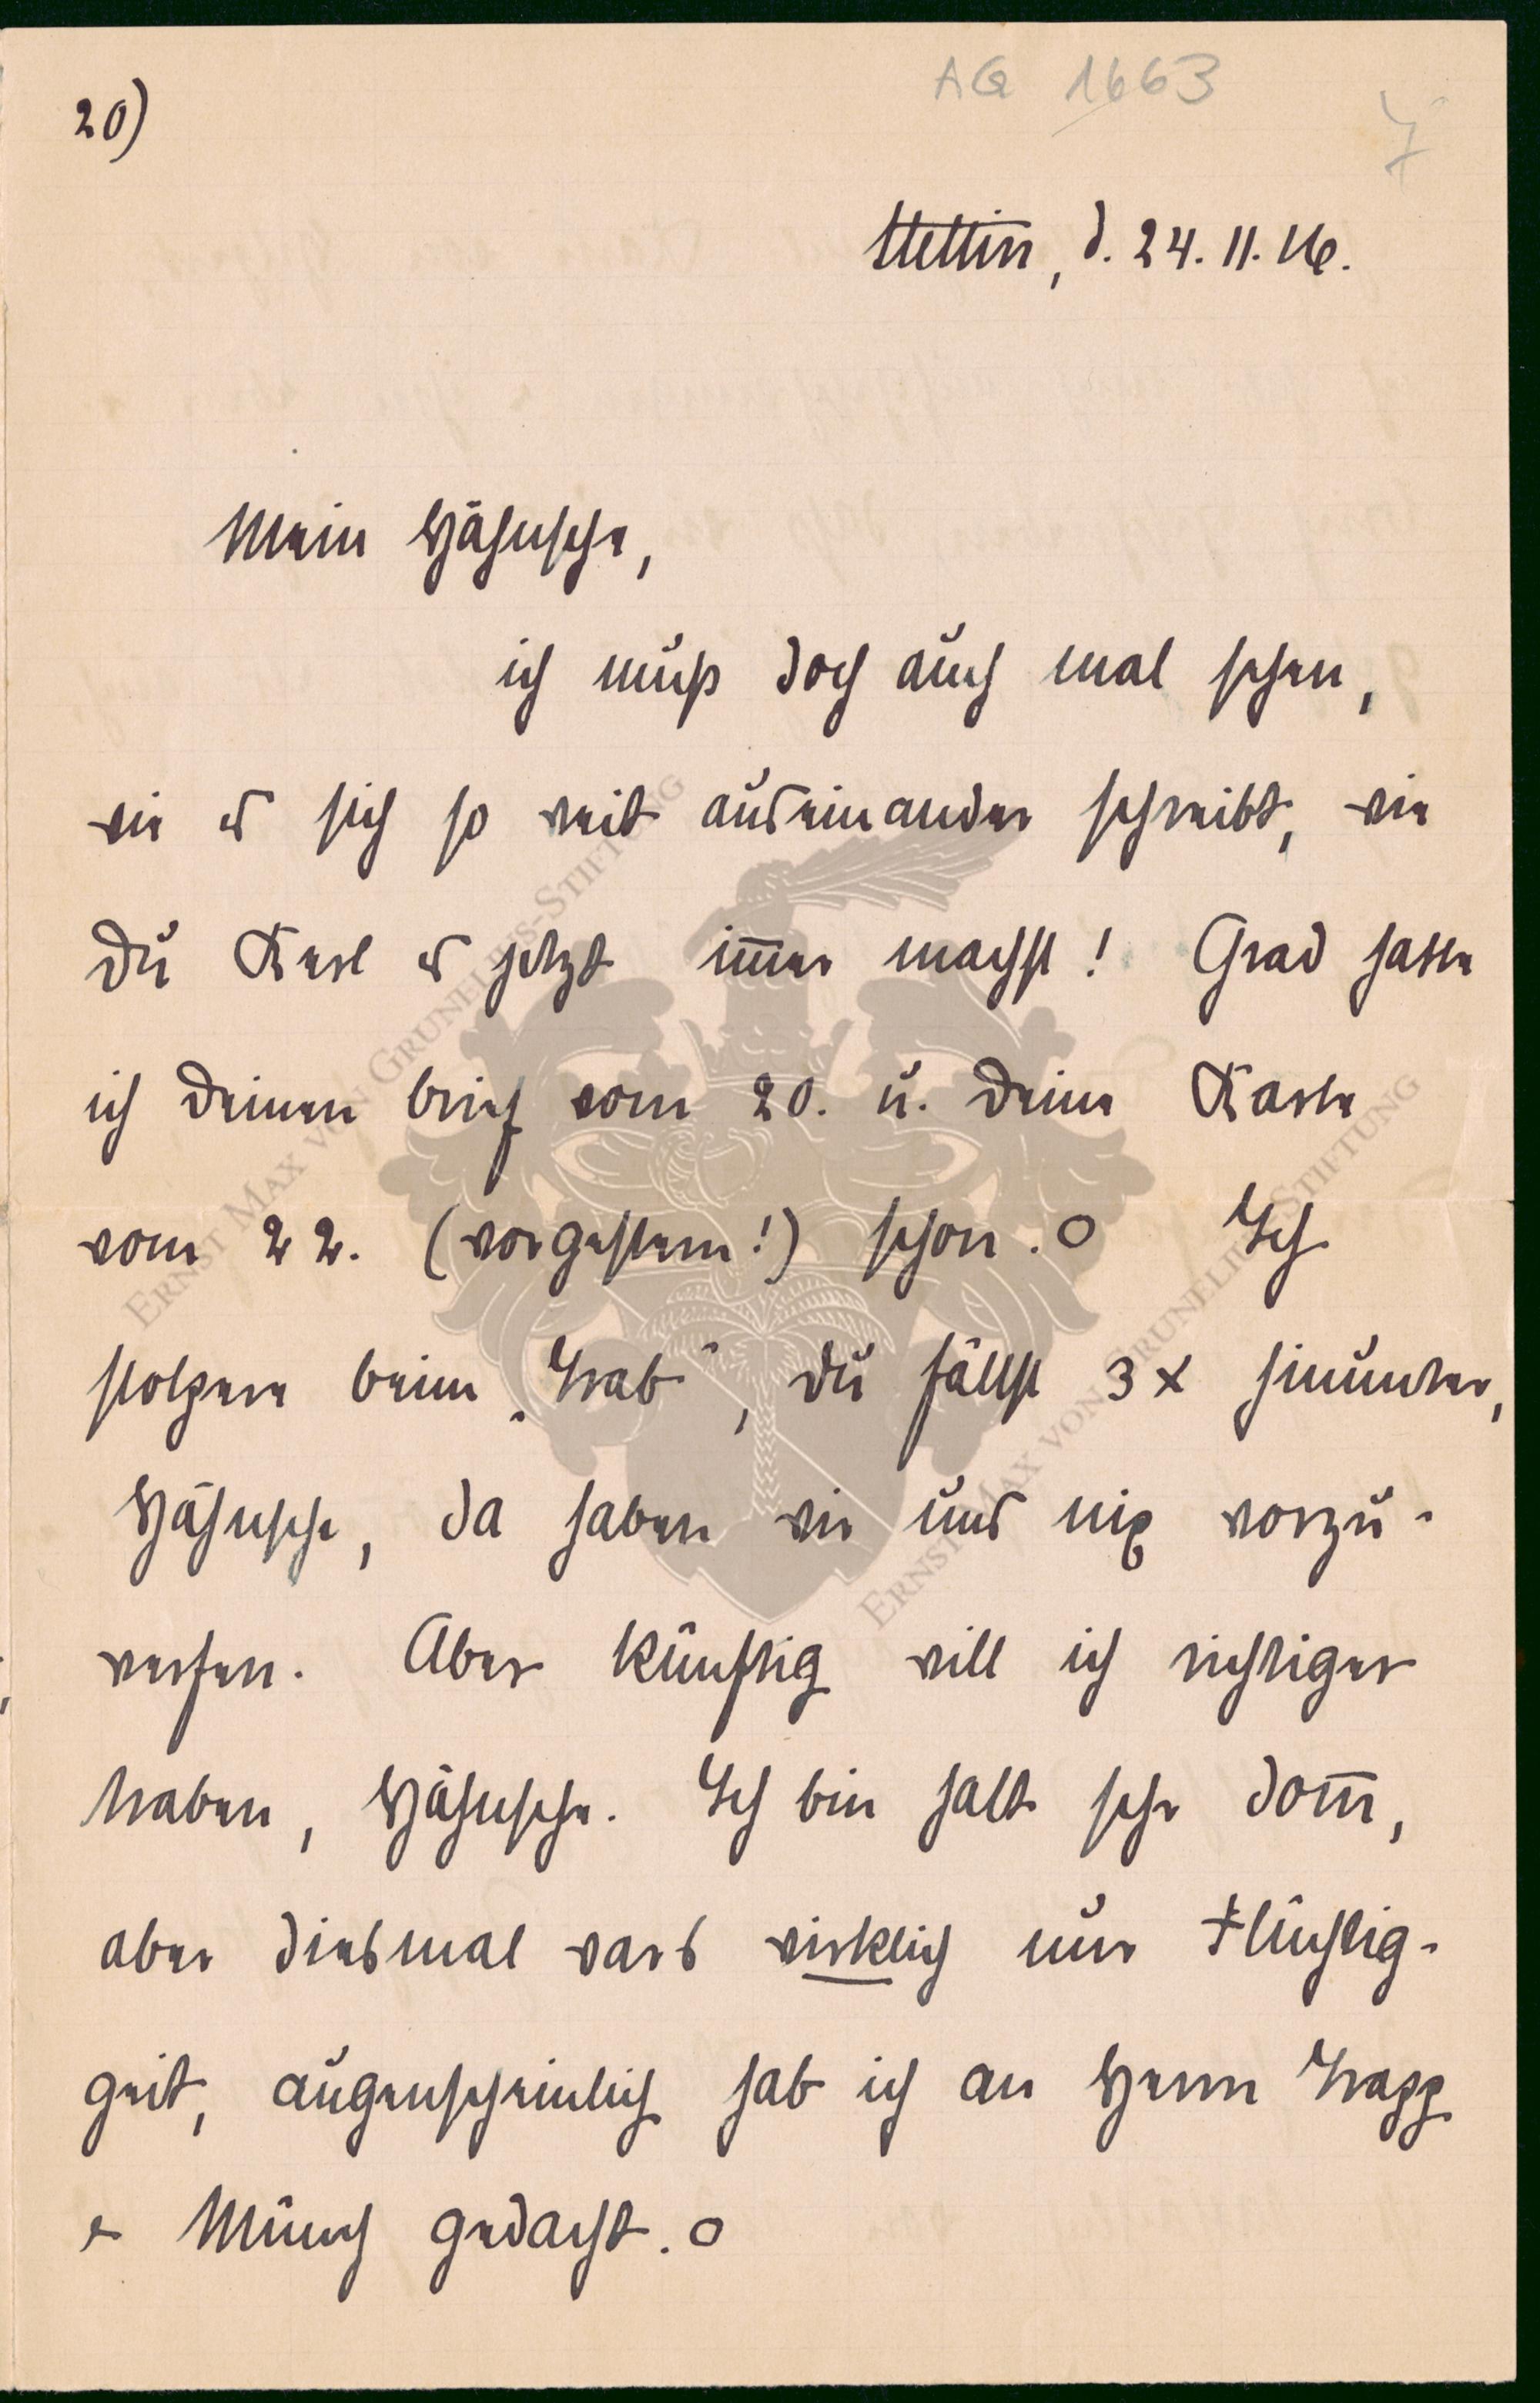 AG 1663
20)
7
Stettin, d. 24. 11. 16.
Mein Hähnsche,
ich muß doch auch mal sehen,
wie es sich so weit auseinander schreibt, wie
Du Kerl es jetzt im̅er machst! Grad hatte
ich Deinen brief vom 20. u. Deine Karte
vom 22. (vorgestern!) schon. O Ich
stolpere beim „Trab“, Du fällst 3 x hinunter,
Hähnsche, da haben wir uns nix vorzu-
werfen. Aber künftig will ich richtiger
traben, Hähnsche. Ich bin halt sehr dom̅,
aber diesmal wars wirklich nur Flüchtig-
geit, augenscheinlich hab ich an Herrn Trapp
& Münch gedacht. O
ERNST MAX VON GRUNELIUS-STIFTUNG
ERNST MAX VON GRUNELIUS-STIFTUNG